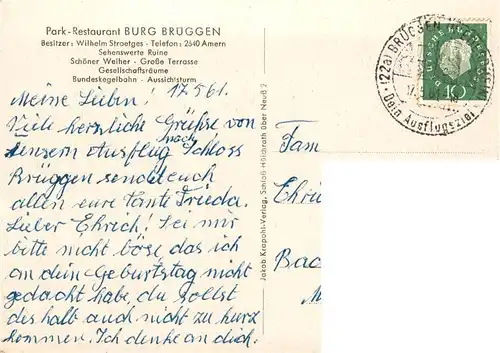 Park-Restaurant BURG BRÜGGEN
Besitzer: Wilhelm Straetges - Telefon: 2640 Amern
Sehenswerte Ruine
Schöner Weiher - Große Terrasse
Gesellschaftsräume
Bundeskegelbahn - Aussichtsturm
Meine Lieben! 17.5.61.
Viele herzlicht Grühse von
unsern Ausflug nach Schloss
Brüggen sendet euch
allen eure Tante Frieda.
Lieber Ehrich! Sei mir
bitte nicht böse das ich
an dein Geburtstag nicht
gedacht habe, du sollst
deshalb auch nicht zu kurz
kommen. Ich denke an dich.
Jakob Krapohl-Verlag, Schloß Hülchrath über Neuß 2
(22a) BRÜGGEN
Dein Ausflugsziel
DEUTSCHE BUNDESPOST
10
Fam
Ehrü
Bac